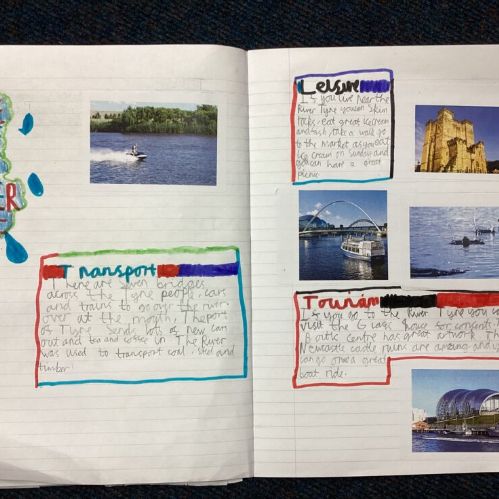 ER
Transport
There are seven bridges
across the Tyne people, cars
and trains to go over the river.
over at the mouth, The port
of Tyne sends lots of new cars
out and tea and coffee in The River
was used to transport coal, steel and
timber.
Leisure
If you live near the
River Tyne you can skim
rocks, eat great icecream
and fish, take a walk go
to the market as you eat
ice cream on Sunday and
you can have a great
picnic
Tourism
If you go to the River Tyne you can
visit the Glass house for concerts
Baltic Centre has great artwork The
Newcastle castle ruins are amazing and
can go on a great
boat ride.